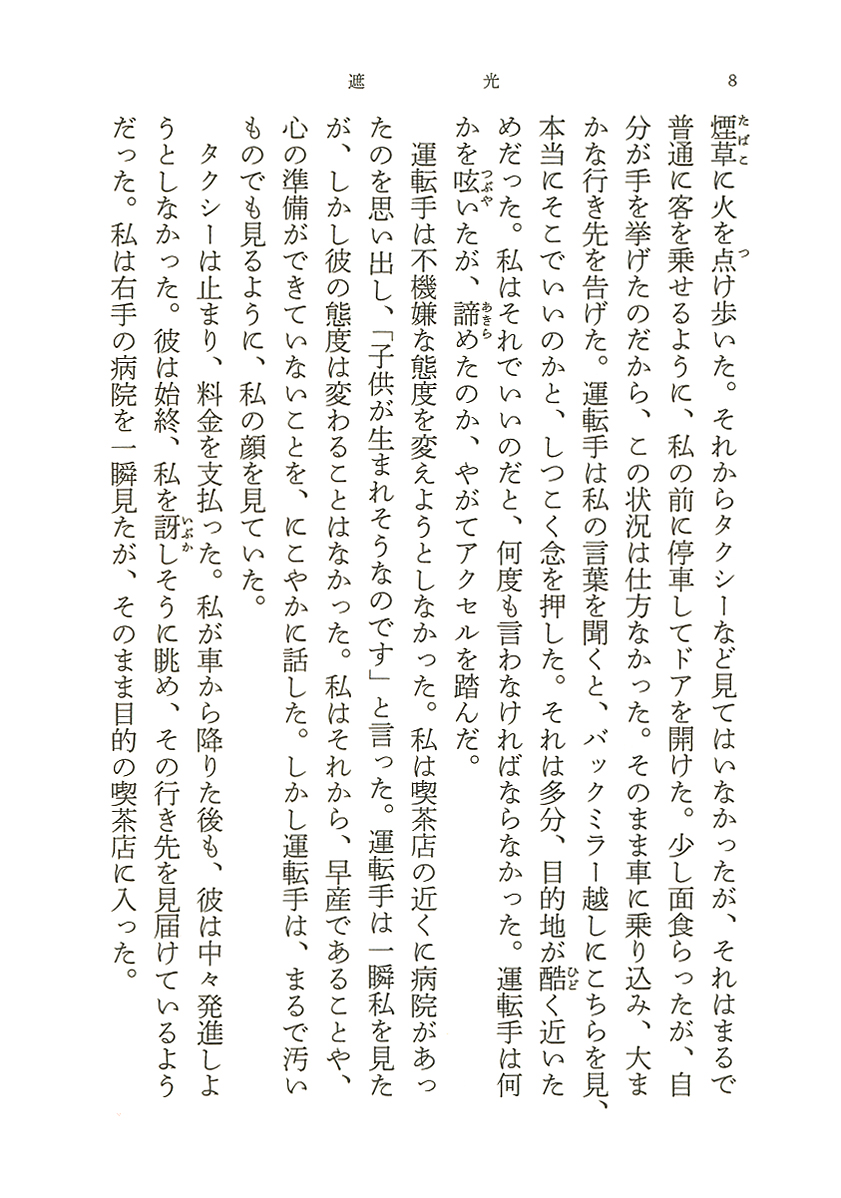 遮光
8
煙草に火を点け歩いた。それからタクシーなど見てはいなかったが、それはまるで
普通に客を乗せるように、私の前に停車してドアを開けた。少し面食らったが、自
分が手を挙げたのだから、この状況は仕方なかった。そのまま車に乗り込み、大ま
かな行き先を告げた。運転手は私の言葉を聞くと、バックミラー越しにこちらを見、
本当にそこでいいのかと、しつこく念を押した。それは多分、目的地が酷く近いた
めだった。私はそれでいいのだと、何度も言わなければならなかった。運転手は何
かを呟いたが、諦めたのか、やがてアクセルを踏んだ。
運転手は不機嫌な態度を変えようとしなかった。私は喫茶店の近くに病院があっ
たのを思い出し、「子供が生まれそうなのです」と言った。運転手は一瞬私を見た
が、しかし彼の態度は変わることはなかった。私はそれから、早産であることや、
心の準備ができていないことを、にこやかに話した。しかし運転手は、まるで汚い
ものでも見るように、私の顔を見ていた。
タクシーは止まり、料金を支払った。私が車から降りた後も、彼は中々発進しよ
うとしなかった。彼は始終、私を訝しそうに眺め、その行き先を見届けているよう
だった。私は右手の病院を一瞬見たが、そのまま目的の喫茶店に入った。